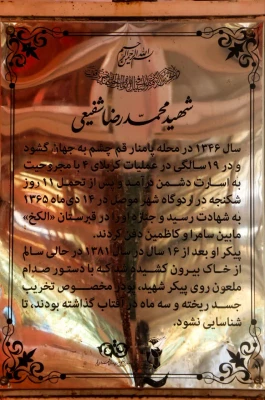 بسم الله الرحمن الرحیم
شهید محمدرضا شفیعی
سال ۱۳۴۶ در محله بامنار قم چشم به جهان گشود
و در ۱۹ سالگی در عملیات کربلای ۴ با مجروحیت
به اسارت دشمن درآمد و پس از تحمل ۱۱ روز
شکنجه در اردوگاه شهر موصل در ۱۴ دی ماه ۱۳۶۵
به شهادت رسید و جنازه او را در قبرستان «الکخ»
مابین سامرا و کاظمین دفن کردند.
پیکر او بعد از ۱۶ سال در سال ۱۳۸۱ در حالی سالم
از خاک بیرون کشیده شد که با دستور صدام
ملعون روی پیکر شهید، پودر مخصوص تخریب
جسد ریخته و سه ماه در آفتاب گذاشته بودند، تا
شناسایی نشود.